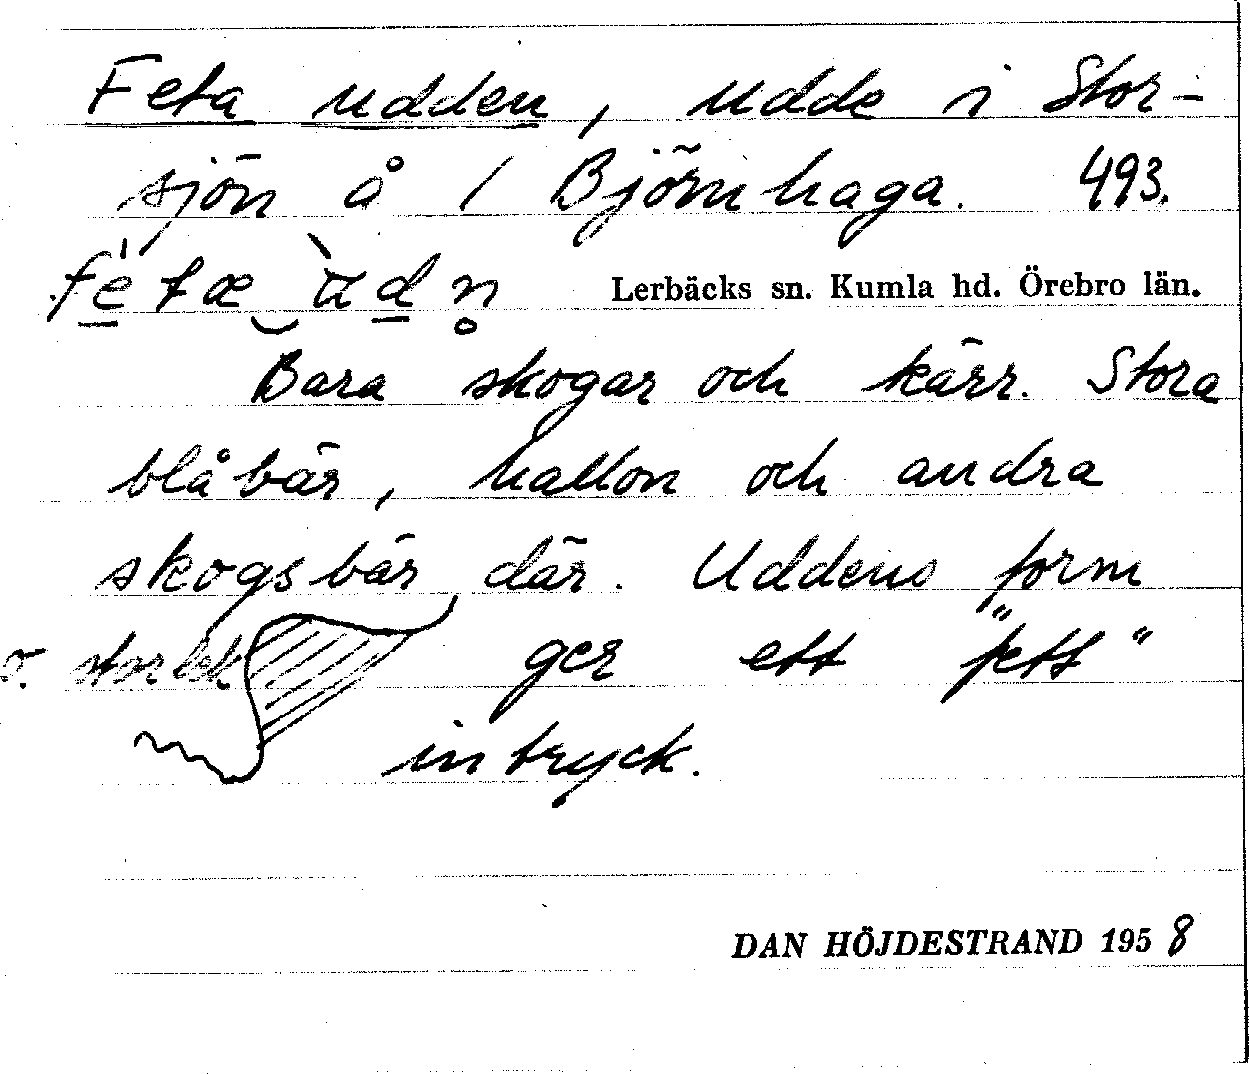 Feta udden, udde i Stor-
sjön å 1 Björnhaga. 493.
Lerbäcks sn. Kumla hd. Örebro län.
Bara skogar och kärr. Stora
blåbär, hallon och andra
skogsbär där. Uddens form
o. storlek ger ett "fett"
intryck.
DAN HÖJDESTRAND 1958